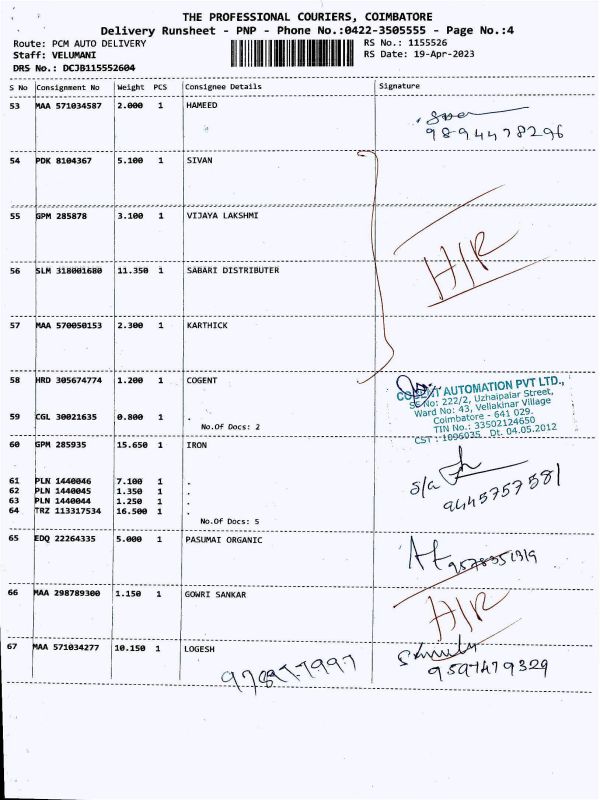 THE PROFESSIONAL COURIERS, COIMBATORE
Delivery Runsheet - PNP - Phone No.:0422-3505555 - Page No.:4
Route: PCM AUTO DELIVERY RS No.: 1155526
Staff: VELUMANI RS Date: 19-Apr-2023
DRS No.: DCJB115552604
S No Consignment No Weight PCS Consignee Details Signature
53 MAA 571034587 2.000 1 HAMEED
9894478296
54 PDK 8104367 5.100 1 SIVAN
55 GPM 285878 3.100 1 VIJAYA LAKSHMI
H/R
56 SLM 318001680 11.350 1 SABARI DISTRIBUTER
57 MAA 570050153 2.300 1 KARTHICK
58 HRD 305674774 1.200 1 COGENT
COGENT AUTOMATION PVT LTD.,
SF No: 222/2, Uzhaipalar Street,
Ward No: 43, Vellakinar Village
Coimbatore - 641 029.
TIN No.: 33502124650
CST : 1096035 Dt. 04.05.2012
59 CGL 30021635 0.800 1 .
No.Of Docs: 2
60 GPM 285935 15.650 1 IRON
61 PLN 1440046 7.100 1 .
62 PLN 1440045 1.350 1 .
63 PLN 1440044 1.250 1 .
64 TRZ 113317534 16.500 1 .
No.Of Docs: 5
s/a
9445757581
65 EDQ 22264335 5.000 1 PASUMAI ORGANIC
66 MAA 298789300 1.150 1 GOWRI SANKAR
H/R
67 MAA 571034277 10.150 1 LOGESH
9597479329